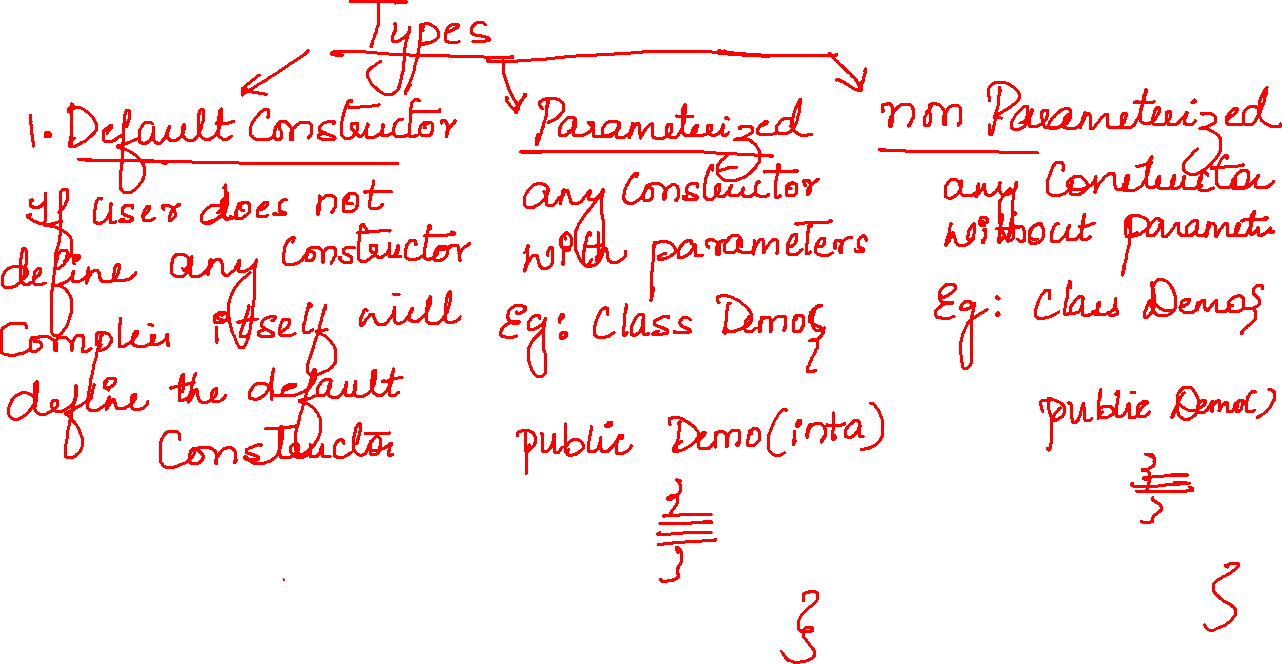 Types
1. Default Constructor
If user does not
define any constructor
Complier itself will
define the default
Constructor
Parameterized
any Constructor
with parameters
Eg: Class Demo{
public Demo(int a)
{
}
}
non Parameterized
any Constructor
without parameter
Eg: Class Demo{
public Demo()
{
}
}